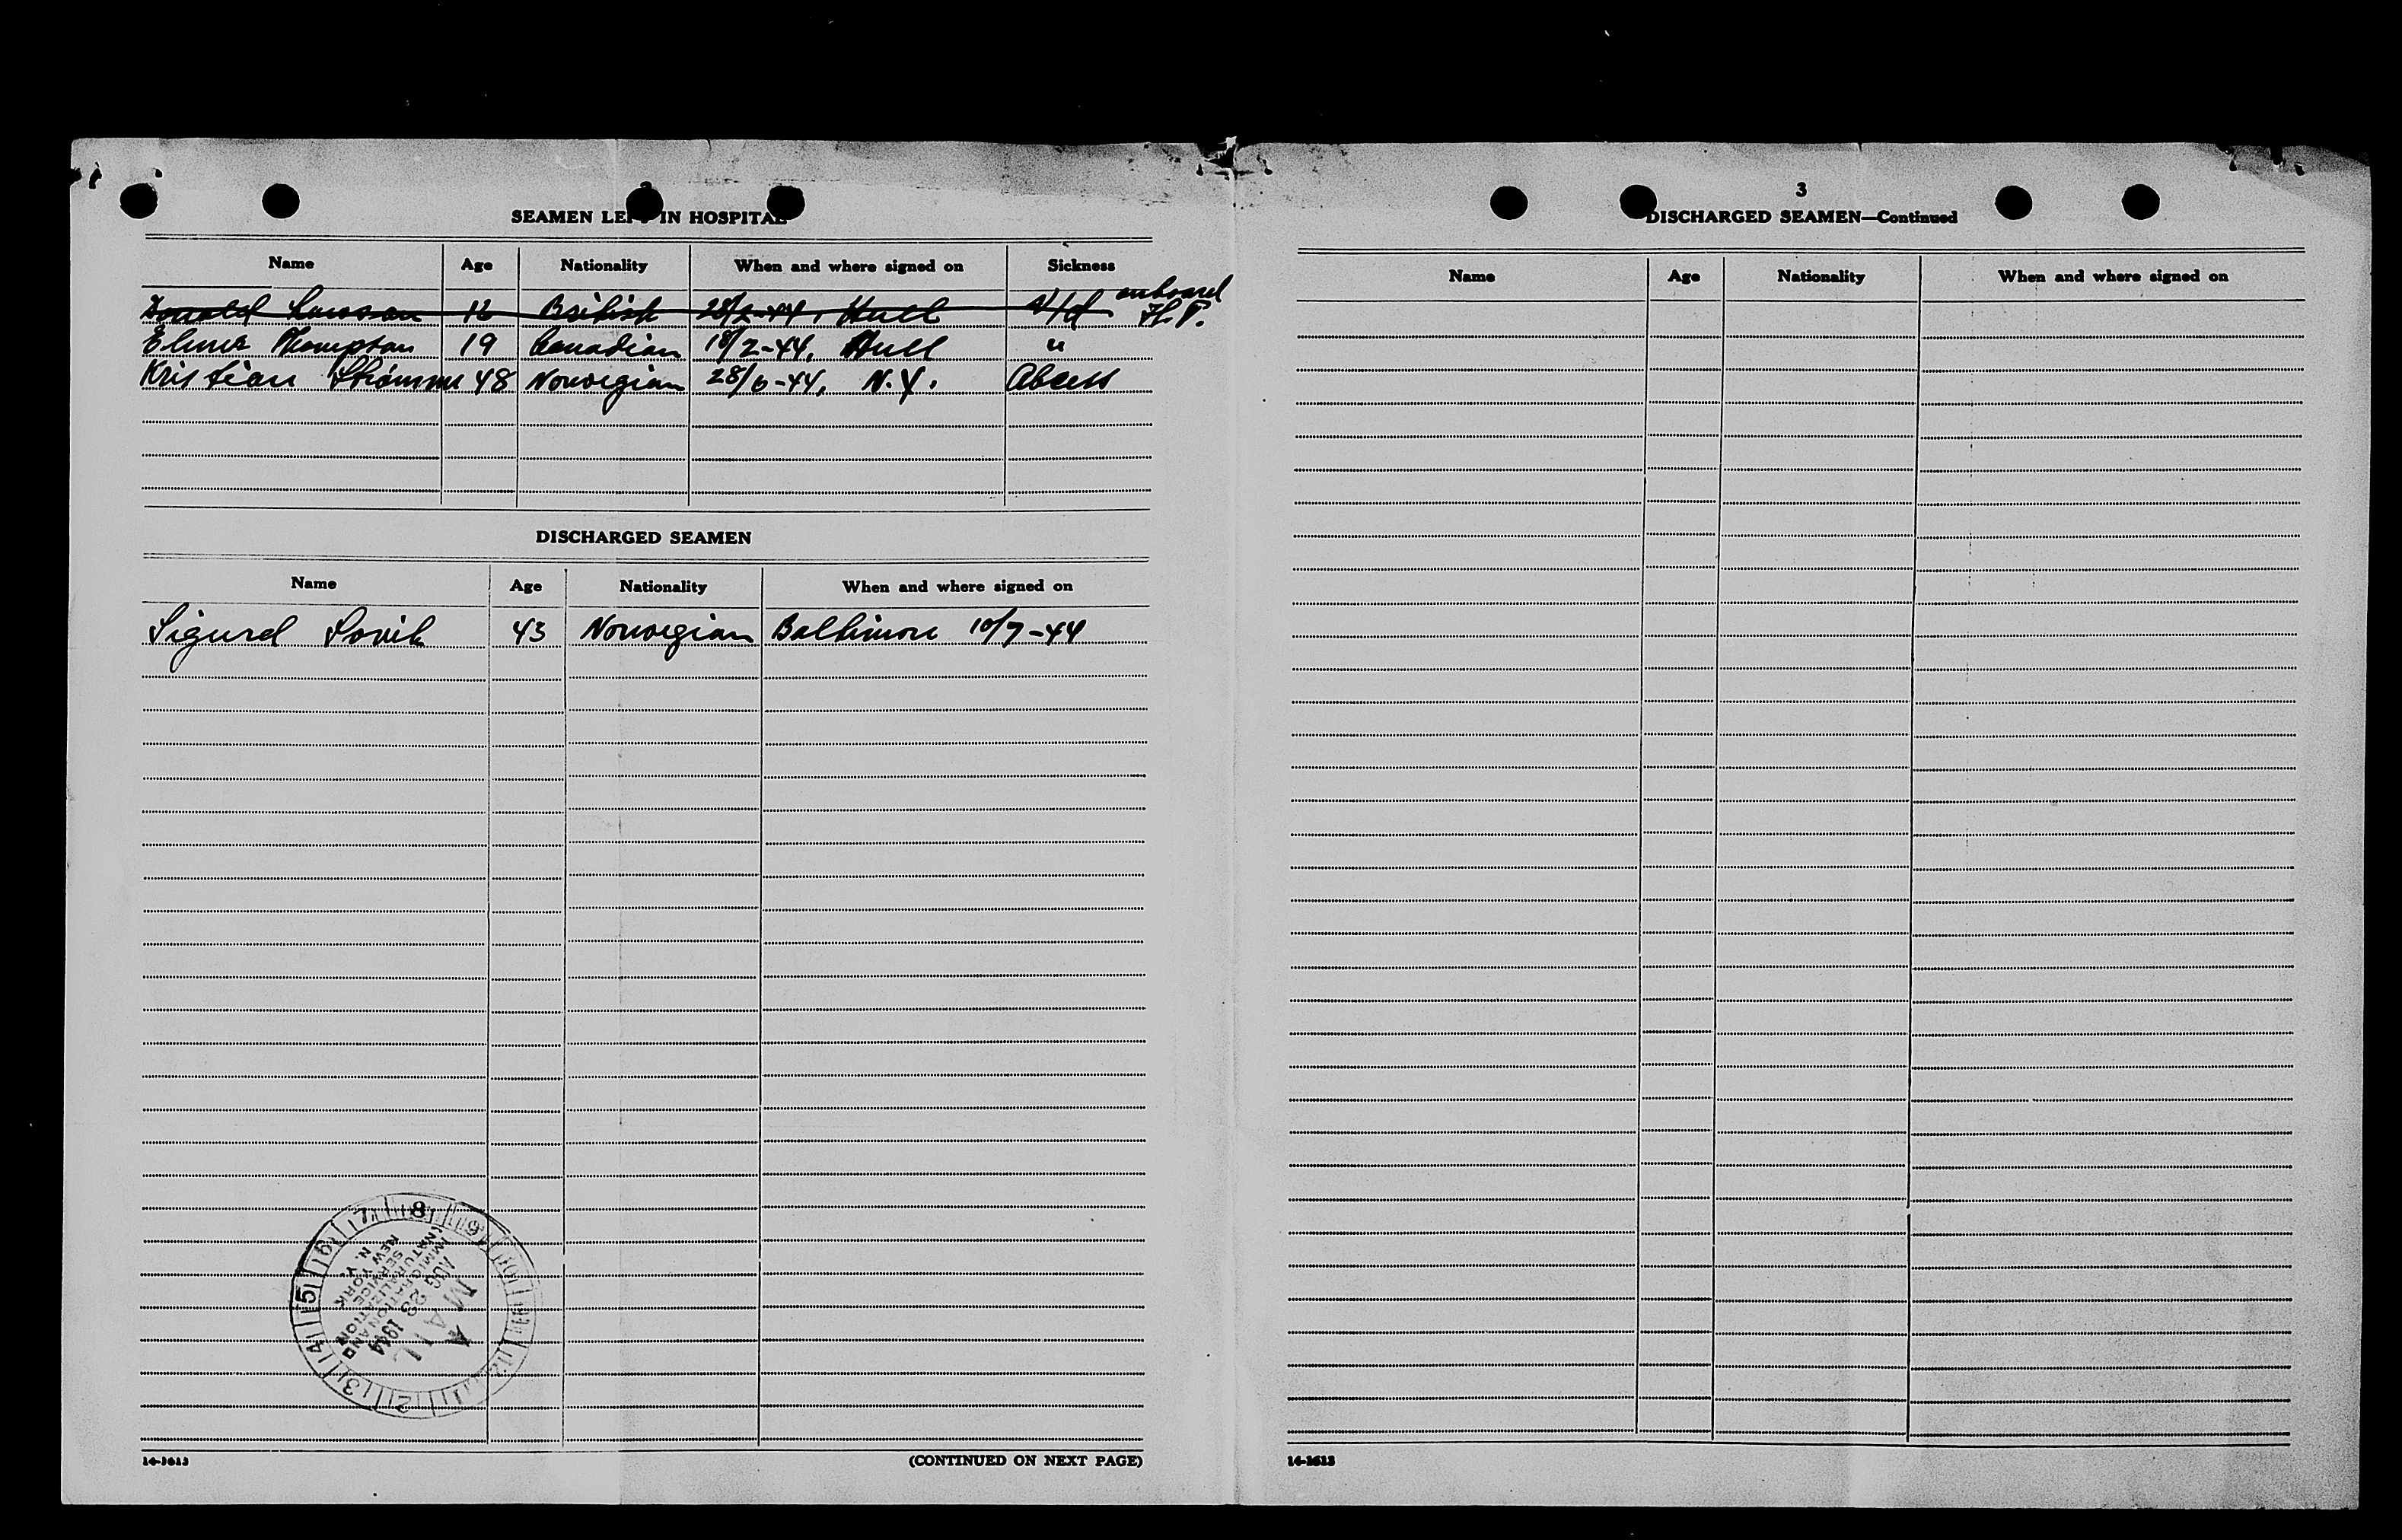 SEAMEN LEFT IN HOSPITAL
Name Age Nationality When and where signed on Sickness
onboard
Donald Lawson 16 British 28/2-44, Hull V/d H.P.
Elmer Thompson 19 Canadian 18/2-44, Hull "
Kristian Strømme 48 Norwegian 28/6-44, N.Y. Abcess
DISCHARGED SEAMEN
Name Age Nationality When and where signed on
Sigurd Sovik 43 Norwegian Baltimore 10/7-44
MAIL
AUG 23 1944
IMMIGRATION AND
NATURALIZATION
SERVICE
NEW YORK
N. Y.
1 2 3 4 5 6 7 8 9 10 11 12
14-1613 (CONTINUED ON NEXT PAGE)
3
DISCHARGED SEAMEN—Continued
Name Age Nationality When and where signed on
14-1613